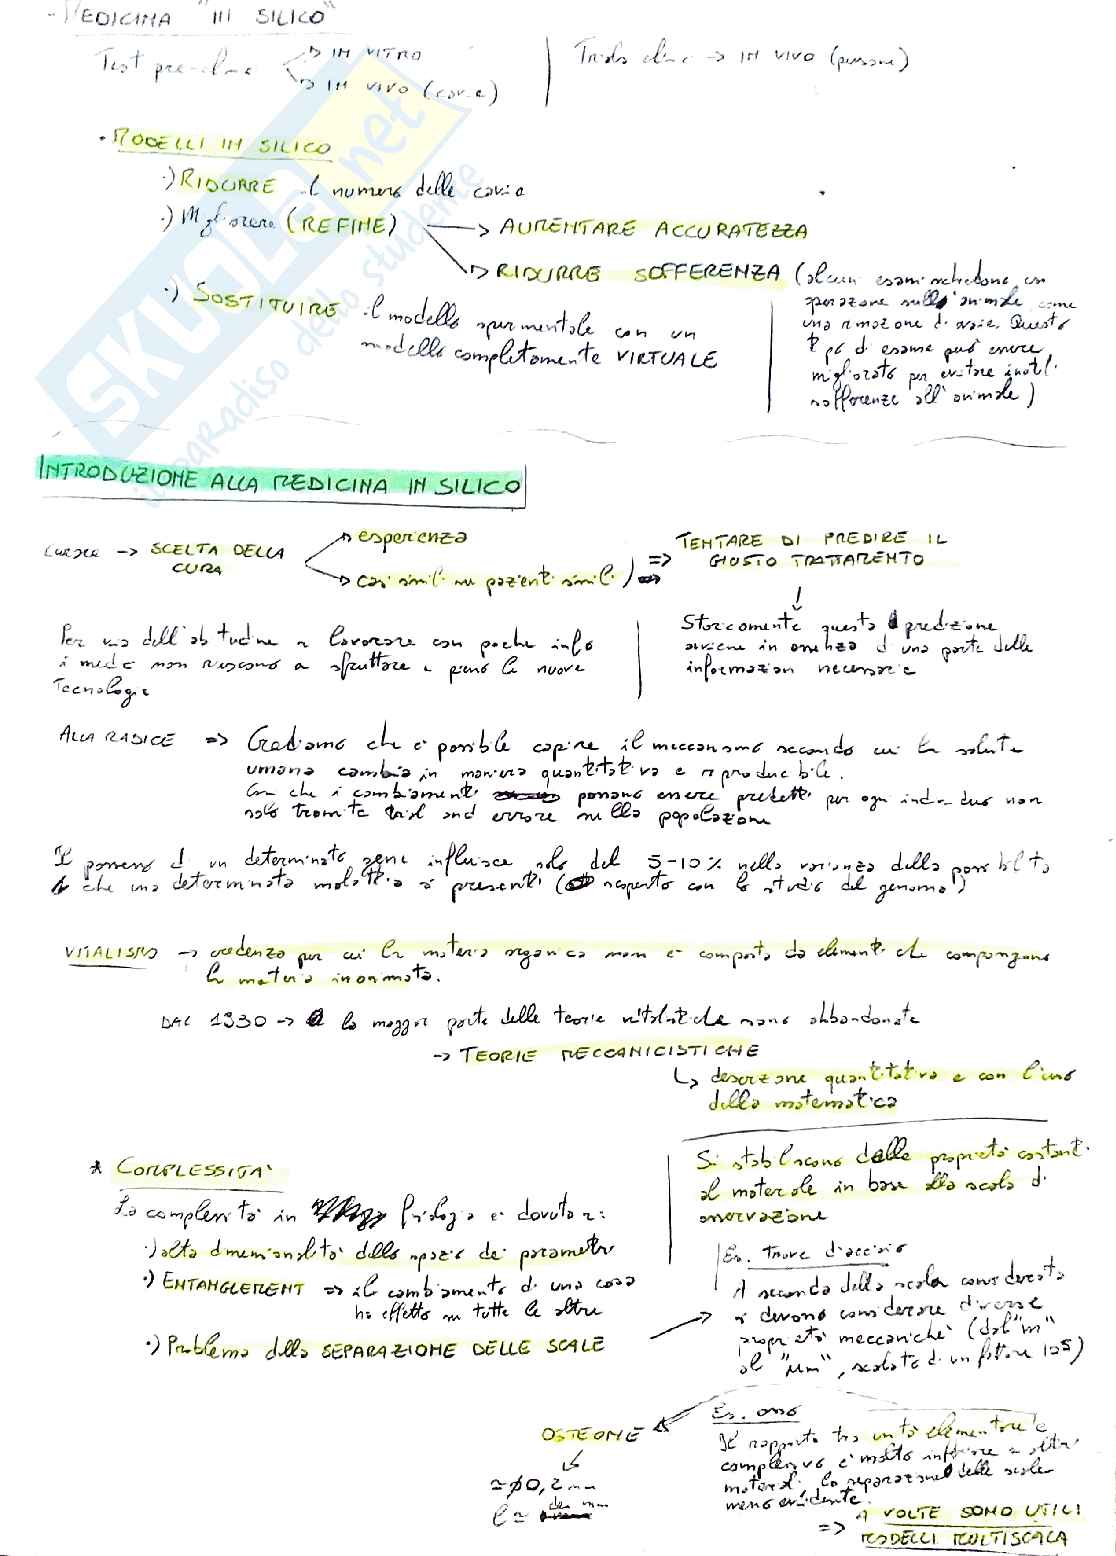 - MEDICINA "IN SILICO"
Test pre-clinic → IN VITRO
→ IN VIVO (cavie)
Trials clinic → IN VIVO (persone)
• MODELLI IN SILICO
·) RIDURRE il numero delle cavie
·) Migliorare (REFINE) → AUMENTARE ACCURATEZZA
→ RIDURRE SOFFERENZA (alcuni esami richiedono un
operazione sull'animale come
una rimozione di ovaie. Questo
tipo di esame può essere
migliorato per evitare inutili
sofferenze all'animale)
·) SOSTITUIRE il modello sperimentale con un
modello completamente VIRTUALE
SKUOLA.net
il paradiso dello studente
INTRODUZIONE ALLA MEDICINA IN SILICO
CURARE → SCELTA DELLA
CURA
→ esperienza
→ casi simili su pazienti simili
⇒ TENTARE DI PREDIRE IL
GIUSTO TRATTAMENTO
Storicamente questa predizione
avviene in assenza di una parte delle
informazioni necessarie
Per via dell'abitudine a lavorare con poche info
i medici non riescono a sfruttare a pieno le nuove
Tecnologie
ALLA RADICE ⇒ Crediamo che è possibile capire il meccanismo secondo cui la salute
umana cambia in maniera quantitativa e riproducibile.
Con che i cambiamenti possano essere predetti per ogni individuo non
solo tramite trial and errore sulla popolazione
Il possesso di un determinato gene influisce solo del 5-10% nella varianza della possibilità
che una determinata malattia si presenti (scoperto con lo studio del genoma)
VITALISMO → credenza per cui la materia organica non è composta da elementi che compongono
la materia inanimata.
DAL 1930 → la maggior parte delle teorie vitalistiche sono abbandonate
→ TEORIE MECCANICISTICHE
↳ descrizione quantitativa e con l'uso
della matematica
* COMPLESSITA'
La complessità in fisiologia è dovuta a:
·) alta dimensionalità dello spazio dei parametri
·) ENTANGLEMENT ⇒ il cambiamento di una cosa
ha effetto su tutte le altre
·) Problema della SEPARAZIONE DELLE SCALE
Si stabiliscono delle proprietà costanti
al materiale in base alla scala di
osservazione
Es. Trave d'acciaio
A seconda della scala considerata
si devono considerare diverse
proprietà meccaniche (dal "m"
al "μm", scalato di un fattore 10⁵)
Es. osso
Il rapporto tra unità elementare e
complessivo è molto inferiore a altri
materiali. La separazione delle scale
meno evidente.
⇒ A VOLTE SONO UTILI
MODELLI MULTISCALA
OSTEONE
≃ ϕ0,2 mm
l ≃ dei mm